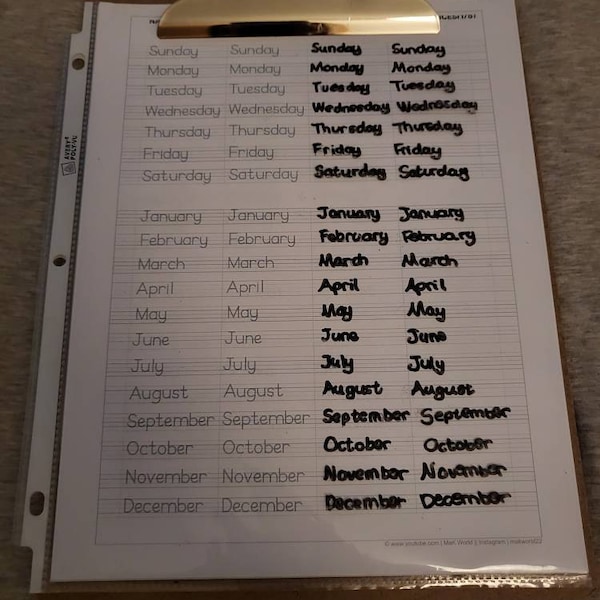 Sunday Sunday Sunday Sunday
Monday Monday Monday Monday
Tuesday Tuesday Tuesday Tuesday
Wednesday Wednesday Wednesday Wednesday
Thursday Thursday Thursday Thursday
Friday Friday Friday Friday
Saturday Saturday Saturday Saturday
January January January January
February February February February
March March March March
April April April April
May May May May
June June June June
July July July July
August August August August
September September September September
October October October October
November November November November
December December December December
AVERY®